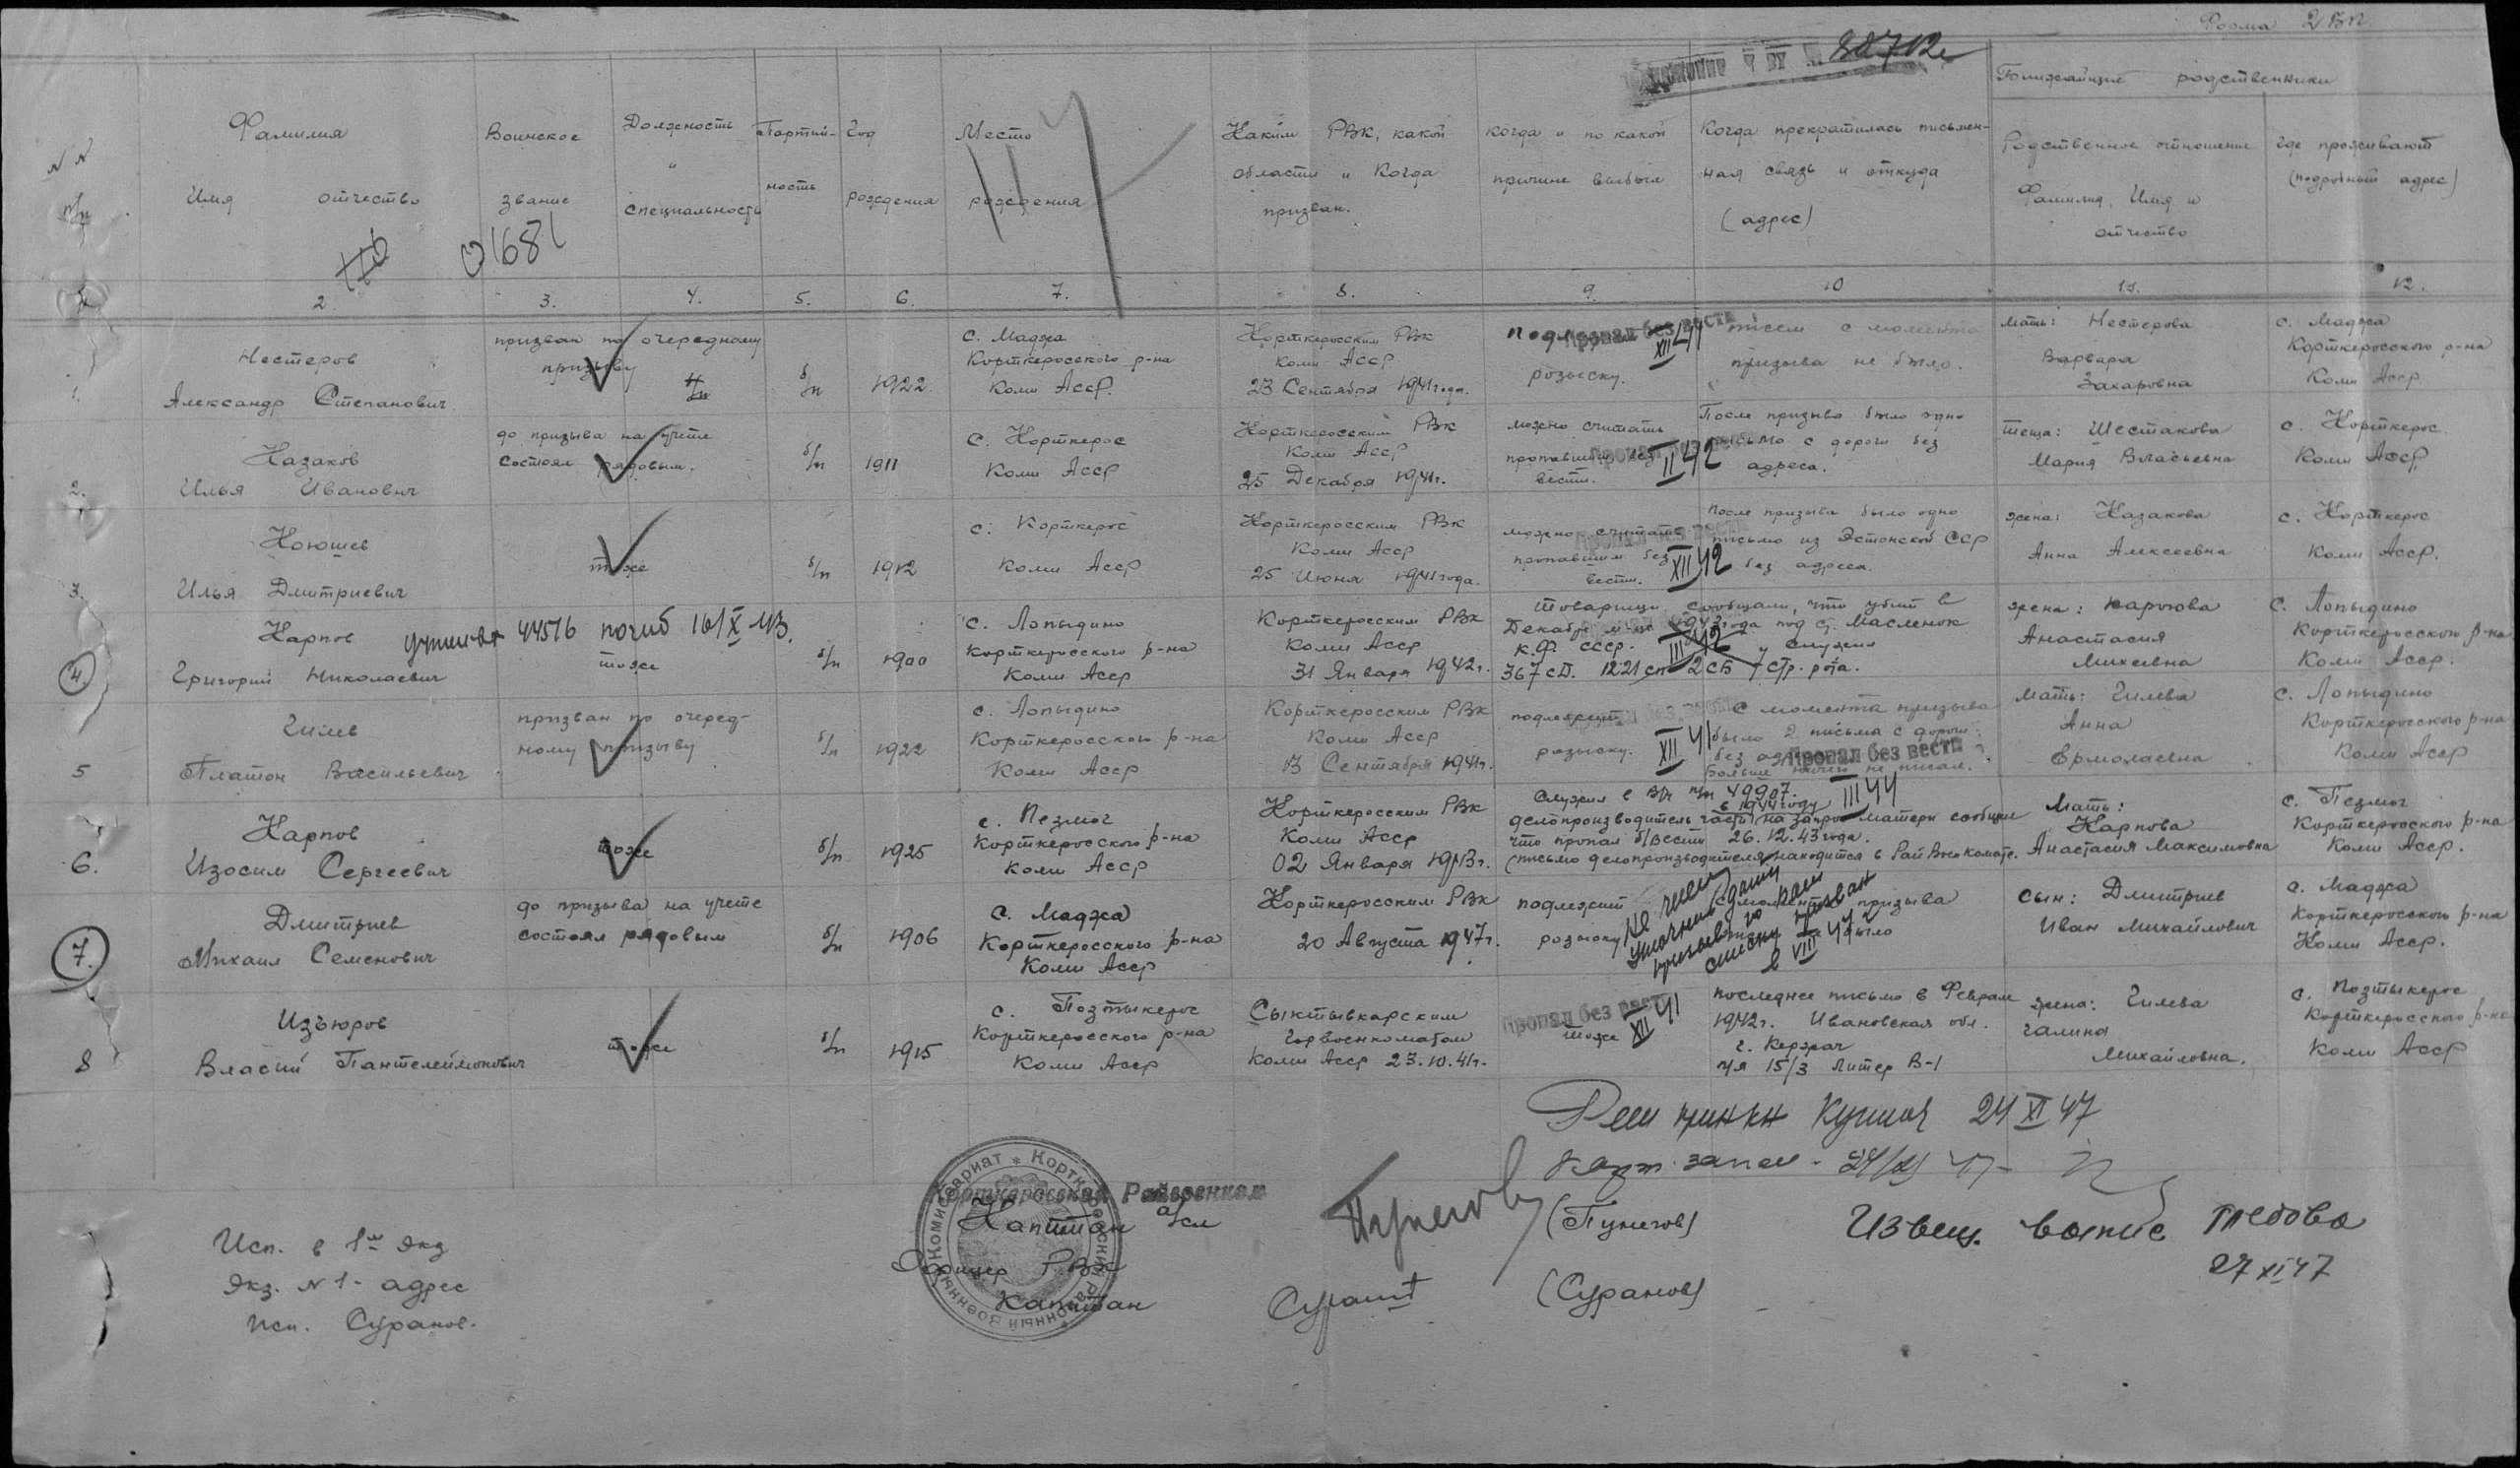 Форма 2 БП
80712с
Ближайшие родственники
N N п/п
Фамилия
Имя отчество
Воинское звание
Должность и специальность
Партийность
Год рождения
Место рождения
Каким РВК, какой области и когда призван.
Когда и по какой причине выбыл
Когда прекратилась письменная связь и откуда (адрес)
Родственное отношение Фамилия, Имя и отчество
где проживают (подробный адрес)
01681
2 3. 4. 5. 6. 7. 8. 9. 10 11. 12.
1.
Нестеров
Александр Степанович
призван по очередному
призыву
б/п
1922
с. Маджа
Корткеросского р-на
Коми Асср.
Корткеросским РВк
Коми Асср
23 Сентября 1941 года.
Пропал без вести
XII 41
розыску.
писем с момента
призыва не было.
мать: Нестерова
Варвара
Захаровна
с. Маджа
Корткеросского р-на
Коми Асср
2.
Казаков
Илья Иванович
до призыва на учете
состоял рядовым.
б/п
1911
с. Корткерос
Коми Асср
Корткеросским РВк
Коми Асср
25 Декабря 1941г.
можно считать
пропавшим без
вести.
II 42
После призыва было одно
письмо с дороги без
адреса.
теща: Шестакова
Мария Власьевна
с. Корткерос.
Коми Асср
3.
Коюшев
Илья Дмитриевич
тоже
б/п
1912
с. Корткерос
Коми Асср
Корткеросским РВк
Коми Асср
25 Июня 1941 года.
можно считать
пропавшим без
вести.
XII 42
После призыва было одно
письмо из Эстонской ССР
без адреса.
жена: Казакова
Анна Алексеевна
с. Корткерос
Коми Асср.
4.
Карпов
Григорий Николаевич
44516 погиб 16/X 43.
тоже
б/п
1900
с. Лопыдино
Корткеросского р-на
Коми Асср
Корткеросским РВк
Коми Асср
31 Января 1942г.
Товарищи сообщали, что убит в
Декабре м-це 1942 года под ст. Масленок
К.Ф. СССР. служил
III 42
367 сд. 1221 сп 2 сб 7 стр. рота.
жена: Карпова
Анастасия
Михеевна
с. Лопыдино
Корткеросского р-на
Коми Асср.
5
Гилев
Платон Васильевич
призван по очеред-
ному призыву
б/п
1922
с. Лопыдино
Корткеросского р-на
Коми Асср
Корткеросским РВк
Коми Асср
13 Сентября 1941г.
подлежит
розыску.
XII 41
С момента призыва
было 2 письма с дороги
Пропал без вести
больше ничего не писал.
мать: Гилева
Анна
Ермолаевна
с. Лопыдино
Корткеросского р-на
Коми Асср
6.
Карпов
Изосим Сергеевич
тоже
б/п
1925
с. Пезмог
Корткеросского р-на
Коми Асср
Корткеросским РВк
Коми Асср
02 Января 1943г.
Служил в в/ч п/п 49907.
III 44
в 1944 году
делопроизводитель части на запрос матери сообщил
что пропал б/вести 26.12.43 года.
(письмо делопроизводителя находится в РайВоенкомате.
Мать:
Карпова
Анастасия Максимовна
с. Пезмог
Корткеросского р-на
Коми Асср.
7.
Дмитриев
Михаил Семенович
до призыва на учете
состоял рядовым
б/п
1906
с. Маджа
Корткеросского р-на
Коми Асср
Корткеросским РВк
20 Августа 1947г.
подлежит
розыску
с момента призыва
было
призван
в VIII 47 г
сын: Дмитриев
Иван Михайлович
с. Маджа
Корткеросского р-на
Коми Асср.
8
Изъюров
Власий Пантелеймонович
тоже
б/п
1915
с. Позтыкерос
Корткеросского р-на
Коми Асср
Сыктывкарским
Горвоенкоматом
Коми Асср 23.10.41г.
Пропал без вести
тоже
XII 41
последнее письмо в Феврале
1942г. Ивановская обл.
г. Киржач
п/я 15/3 Литер В-1
жена: Гилева
Галина
Михайловна.
с. Позтыкерос
Корткеросского р-на
Коми Асср
24 XI 47
Корткеросский Райвоенком
Капитан а/сл
(Пунегов)
Офицер РВк
Капитан
(Суранов)
Извещ.
27 XI 47
Исп. в 1м экз
Экз. N 1 - адрес
Исп. Суранов.